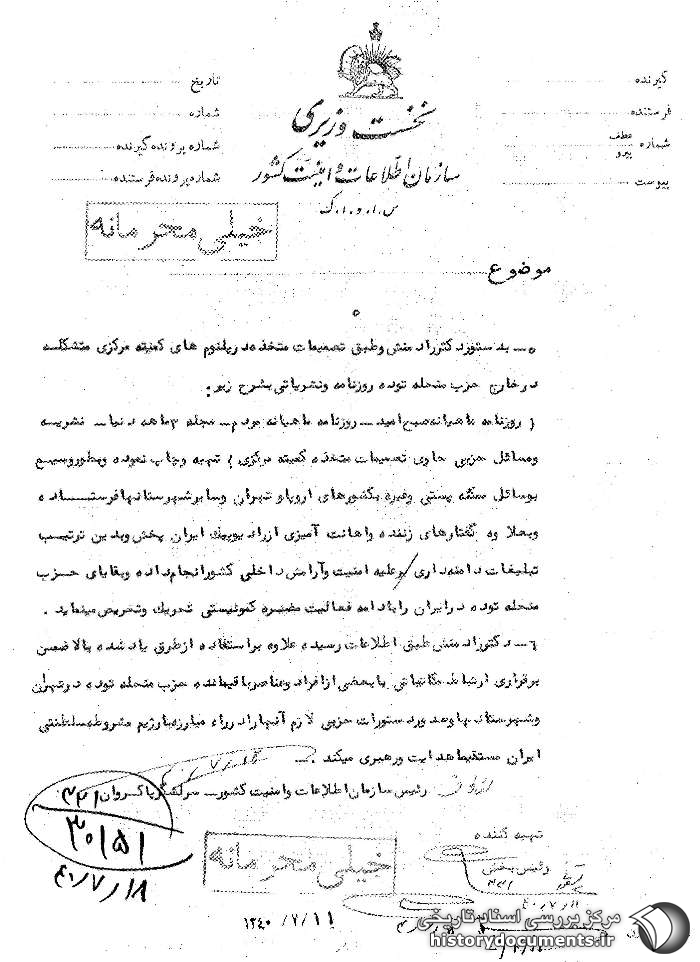 گیرنده
فرستنده
شماره
عطف
پیرو
پیوست
نخست وزیری
سازمان اطلاعات و امنیت کشور
س.ا.و.ا.ک
تاریخ
شماره
شماره پرونده گیرنده
شماره پرونده فرستنده
خیلی محرمانه
موضوع
۵ـ بدستور دکتر رادمنش و طبق تصمیمات متخذه در پلنوم های کمیته مرکزی متشکله
در خارج حزب منحله توده روزنامه و نشریاتی بشرح زیر :
( روزنامه ماهیانه صبح امید ـ روزنامه ماهیانه مردم ـ مجله ۳ ماهه دنیا ـ نشریه
ومسائل حزبی حاوی تصمیمات متخذه کمیته مرکزی ) تهیه وچاپ نموده وبطوروسیع
بوسائل مختلفه پستی وغیره بکشورهای اروپا و تهران وسایر شهرستانها فرستاده
وبعلاوه گفتارهای زننده واهانت آمیزی از رادیو پیک ایران پخش وبدین ترتیب
تبلیغات دامنه داری بر علیه امنیت وآرامش داخلی کشور انجام داده وبقایای حزب
منحله توده در ایران را بادامه فعالیت مضره کمونیستی تحریک وتحریص مینماید .
۶ـ دکتر رادمنش طبق اطلاعات رسیده علاوه بر استفاده از طرق یاد شده بالا ضمن
برقراری ارتباط مکاتباتی با بعضی از افراد وعناصر باقیمانده حزب منحله توده در تهران
وشهرستانها وصدور دستورات حزبی لازم آنها را در راه مبارزه با رژیم مشروطه سلطنتی
ایران مستقیما هدایت ورهبری میکند .ـ
رئیس سازمان اطلاعات وامنیت کشورـ سرلشگر پاکروان
۳۳۱
۳۰۱۵۱
۴۰/۷/۱۸
تهیه کننده
رئیس بخش
۳۳۱
خیلی محرمانه
۱۳۴۰/۷/۱۱
مرکز بررسی اسناد تاریخی
historydocuments.ir